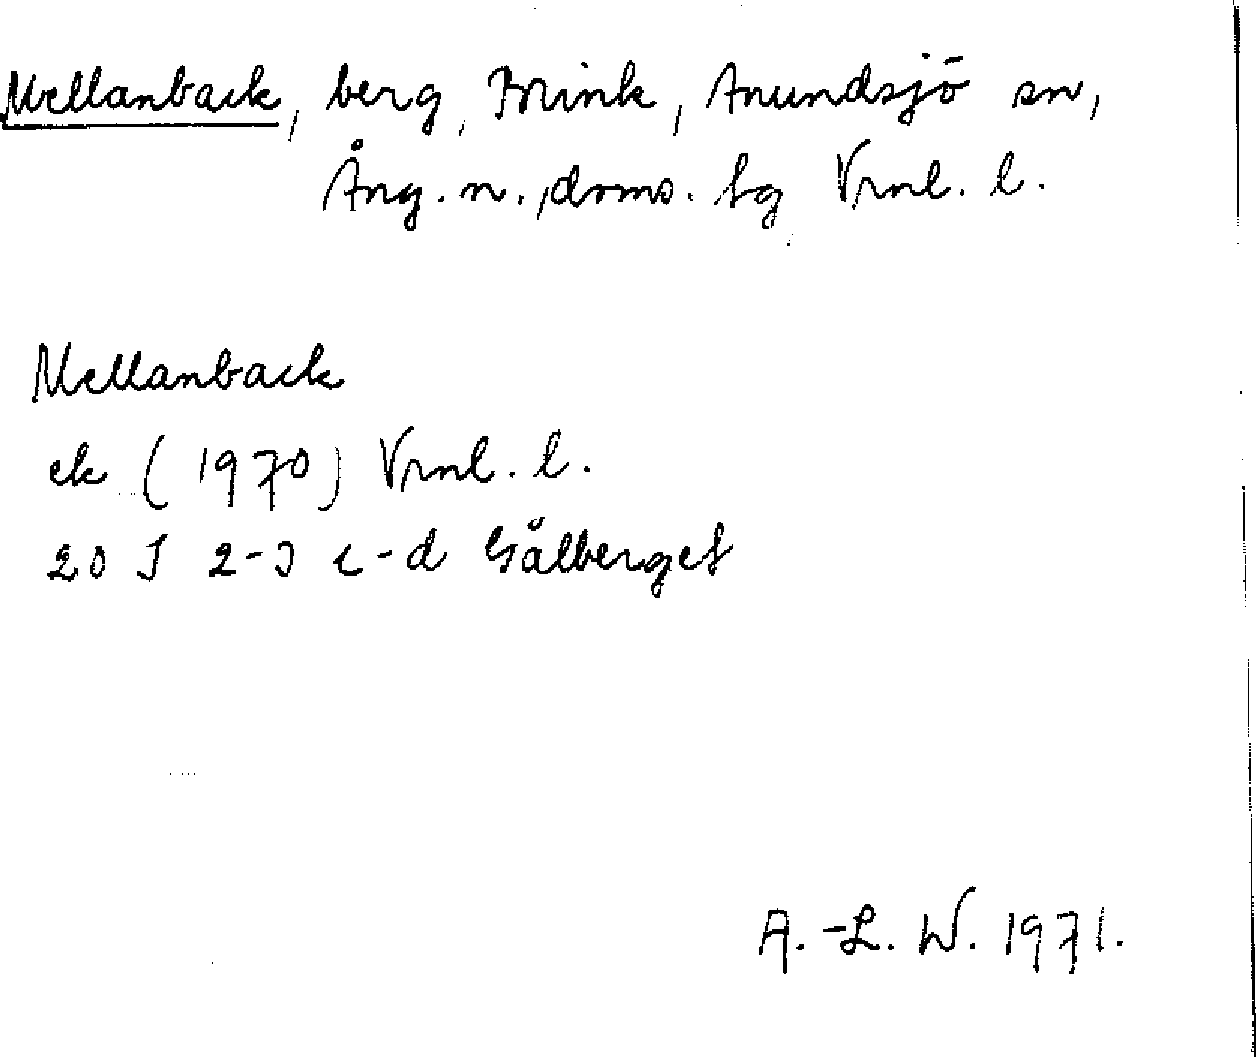 Mellanback, berg, Brink, Anundsjö sn,
Ång. n., doms. tg Vrnl. l.
Mellanback
ek (1970) Vrnl. l.
20 J 2-3 c-d Gålberget
A.-L. W. 1971.